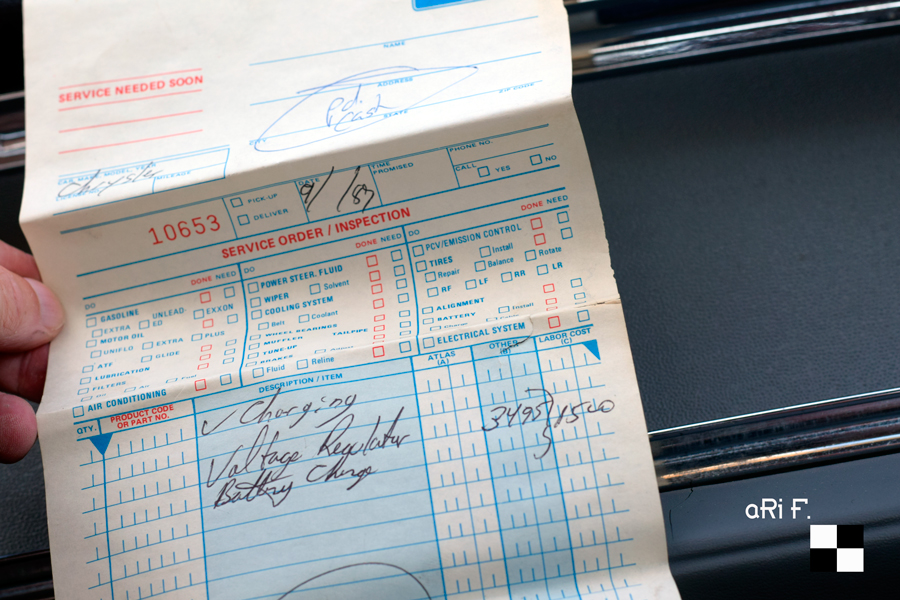 NAME
SERVICE NEEDED SOON
ADDRESS
Pd.
Cash
CITY STATE ZIP CODE
CAR MAKE, MODEL, YEAR
Chrysler
MILEAGE
PICK-UP
DELIVER
DATE
9/ /87
TIME PROMISED
PHONE NO.
CALL YES NO
10653
SERVICE ORDER / INSPECTION
DO DONE NEED
GASOLINE UNLEAD EXXON
EXTRA ED
MOTOR OIL PLUS
UNIFLO EXTRA
ATF GLIDE
LUBRICATION
FILTERS
Oil Air Fuel
AIR CONDITIONING
DO DONE NEED
POWER STEER. FLUID
WIPER Solvent
COOLING SYSTEM
Belt Coolant
WHEEL BEARINGS
MUFFLER TAILPIPE
TUNE-UP
BRAKES Adjust
Fluid Reline
DO DONE NEED
PCV/EMISSION CONTROL
TIRES Install
Repair Balance Rotate
RF LF RR LR
ALIGNMENT
BATTERY Install
Charge
ELECTRICAL SYSTEM
QTY. PRODUCT CODE OR PART NO. DESCRIPTION / ITEM ATLAS (A) OTHER (B) LABOR COST (C)
✓ Charging
Voltage Regulator 3495 1500
Battery Charge
aRi F.